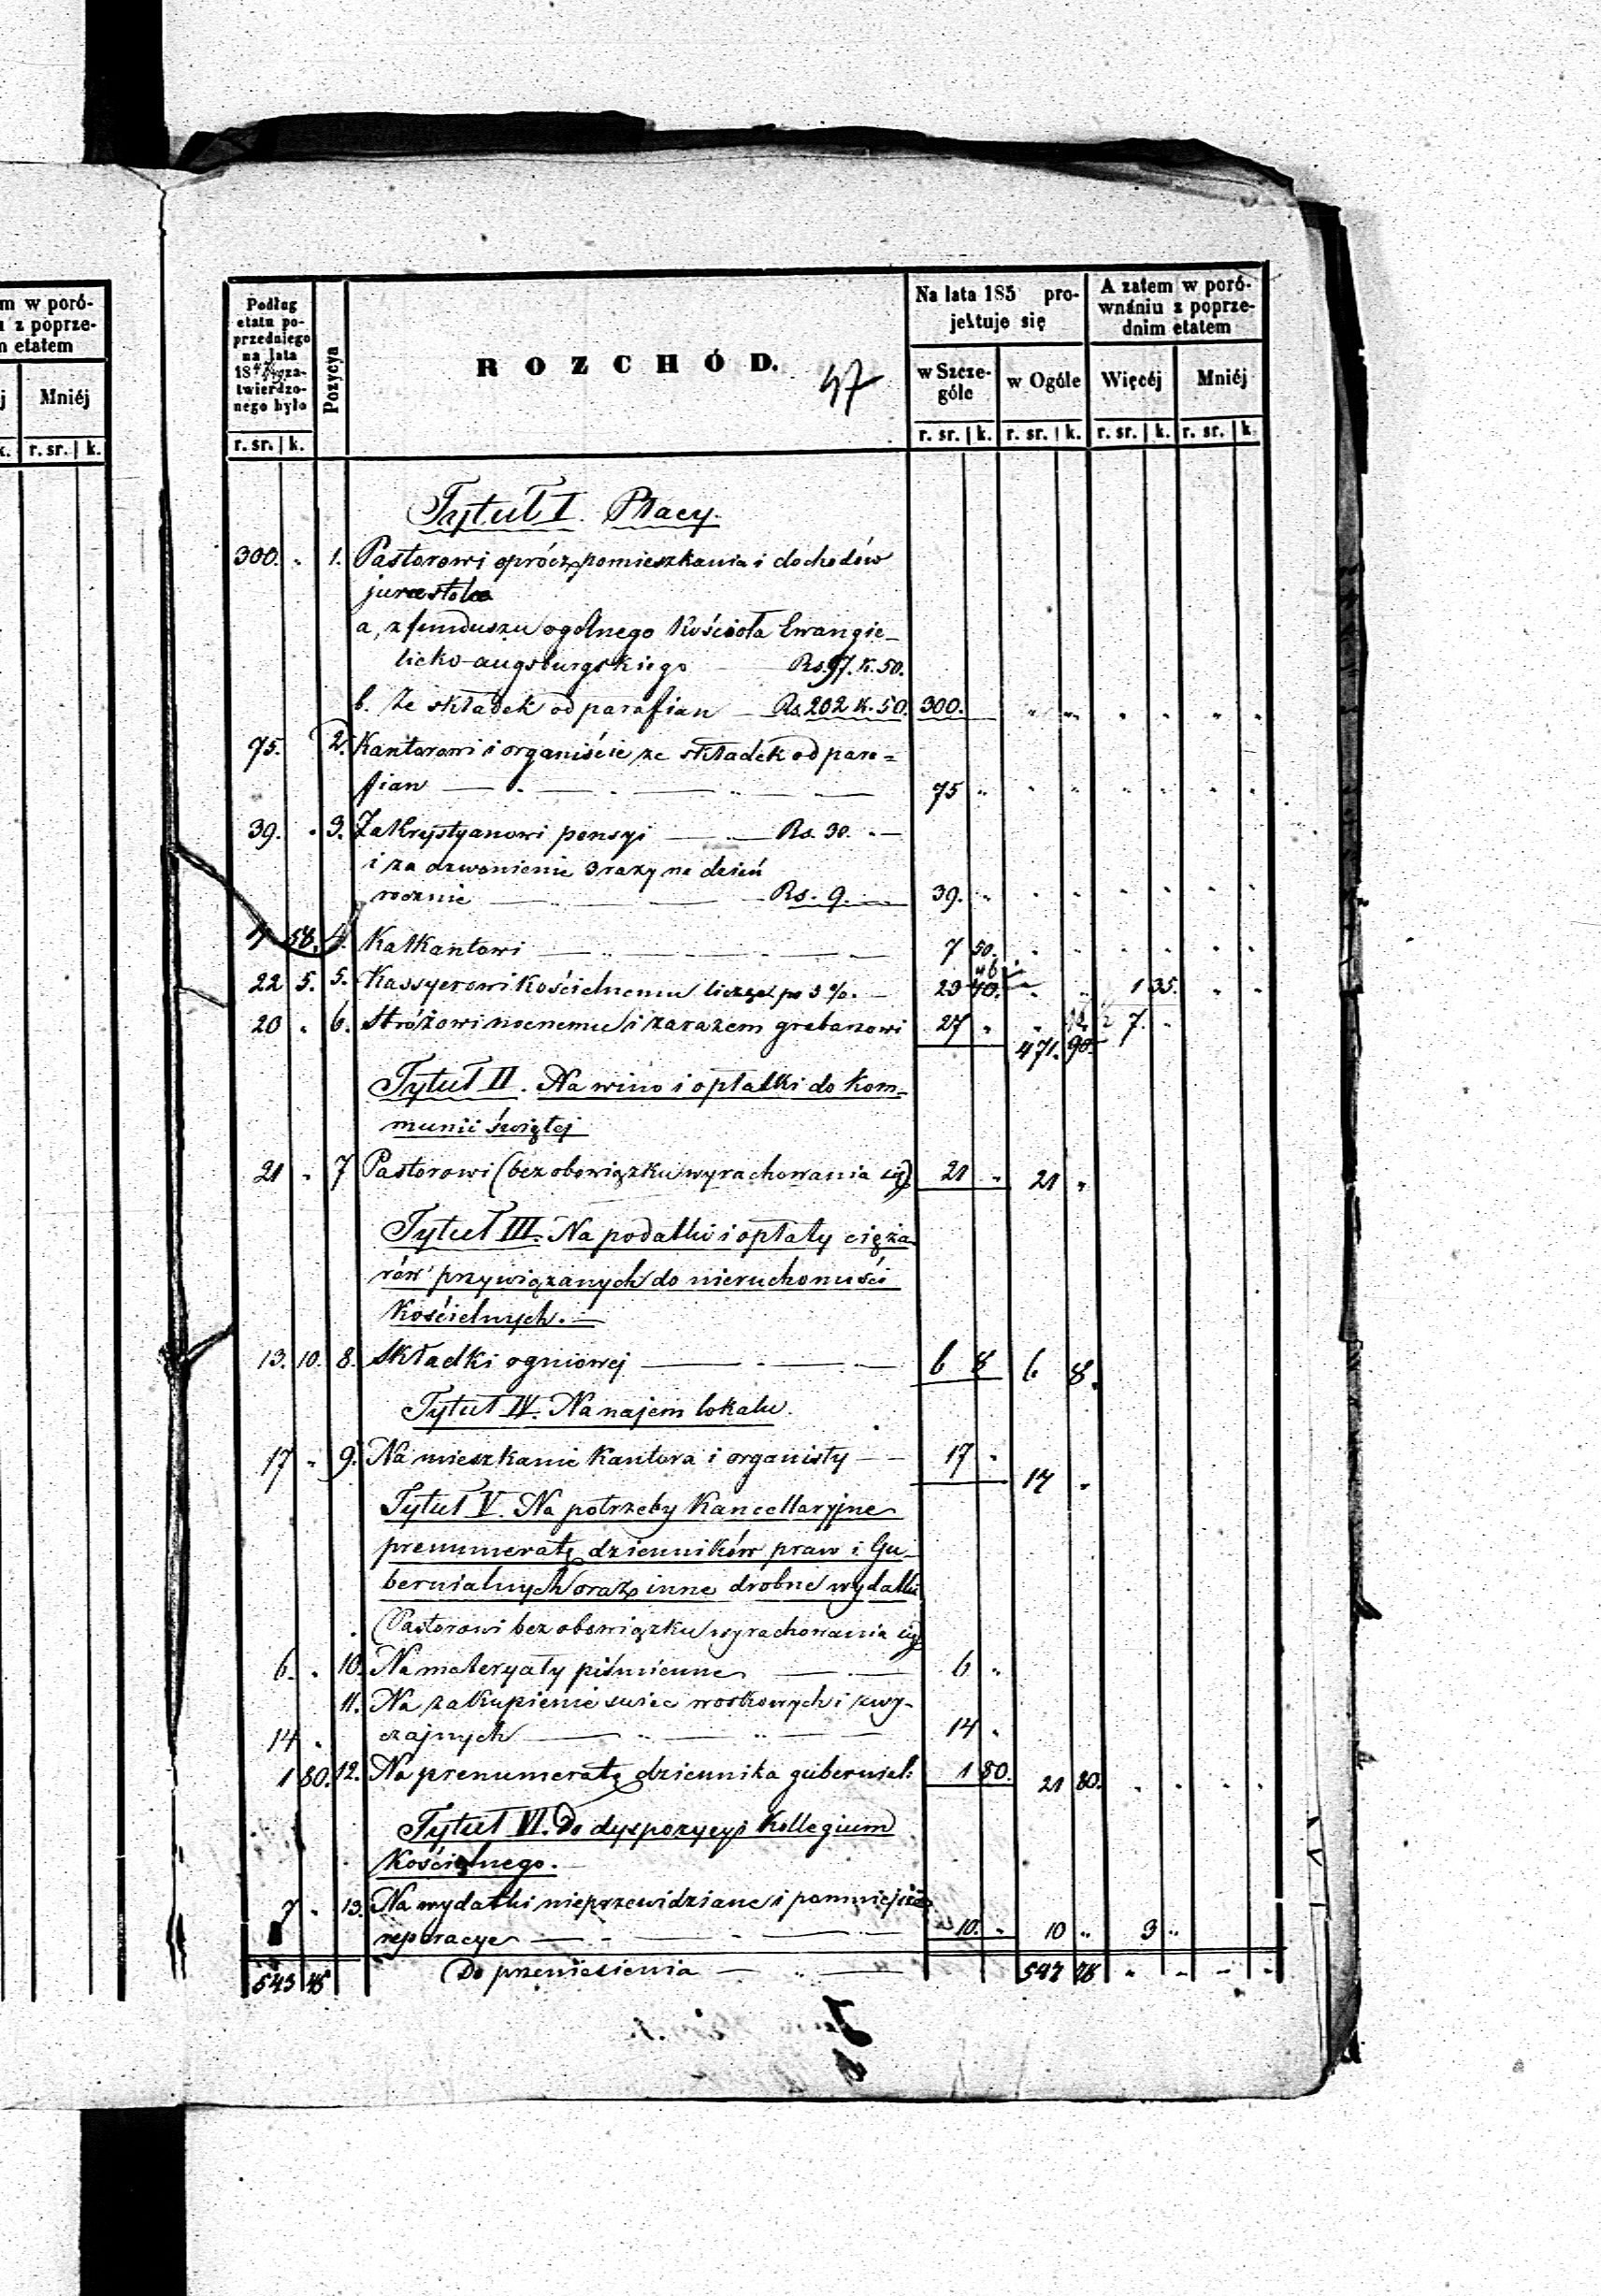 m w poró-
u z poprze-
m etatem
j Mniéj
k. r. sr. k.
Podług etatu po-przedniego na lata 18 za-twierdzo-nego było
Pozycya
R O Z C H Ó D.
47
Na lata 185 pro-jektuje się
A zatem w poró-wnániu z poprze-dnim etatem
w Szcze-góle
w Ogóle
Więcéj
Mniéj
r. sr. k. r. sr. k. r. sr. k. r. sr. k. r. sr. k.
Tytuł I. Płacy.
300. " 1. Pastorowi oprócz pomieszkania i dochodów
jura stolae
a, z funduszu ogólnego Kościoła Ewangie-
licko-augsburgskiego — Rs. 97. K. 50.
b. Ze składek od parafian — Rs. 202 K. 50. 300. " " " " " "
75. 2. Kantorowi i organiście ze składek od para=
fian — 75 " " " " " " "
39. " 3. Zakrystyanowi pensyi — Rs. 30. " —
i za dzwonienie 3 razy na dzień
rocznie — Rs. 9. — 39. " " " " " " "
7 50. 4. Kalkantowi — 7 50. " " " " " "
22 5. 5. Kassyerowi Kościelnemu licząc po 5%. — 23 40. " " 1 35. " "
20 " 6. Stróżowi nocnemu i zarazem grabarzowi 27 " " 7. "
471. 90.
Tytuł II. Na wino i opłatki do kom-
munii świętej
21 " 7 Pastorowi (bez obowiązku wyrachowania się) 21 " 21 "
Tytuł III. Na podatki i opłaty cięża-
rów przywiązanych do nieruchomości
Kościelnych. —
13. 10. 8. Składki ogniowej — 6 8 6 8.
Tytuł IV. Na najem lokalu.
17 " 9. Na mieszkanie Kantora i organisty — 17 "
17 "
Tytuł V. Na potrzeby Kancellaryjne
prenumeratę dzienników praw i Gu-
bernialnych oraz inne drobne wydatki
(Pastorowi bez obowiązku wyrachowania się)
6. " 10. Na materyały piśmienne — 6 "
11. Na zakupienie swiec woskowych i zwy-
14 " czajnych — 14 "
1 80. 12. Na prenumeratę dziennika gubernial: 1 80. 21 80. " " " "
Tytuł VI. Do dyspozycyi Kollegium
Kościelnego.
7 " 13. Na wydatki nieprzewidziane i pomniejsze
reparacye — 10. " 10 " 3 "
543 45 Do przeniesienia — 547 78 " " " "